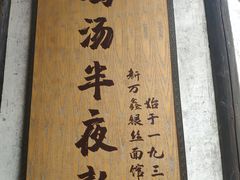 汤半夜
始于一九三
新万鑫银丝面馆